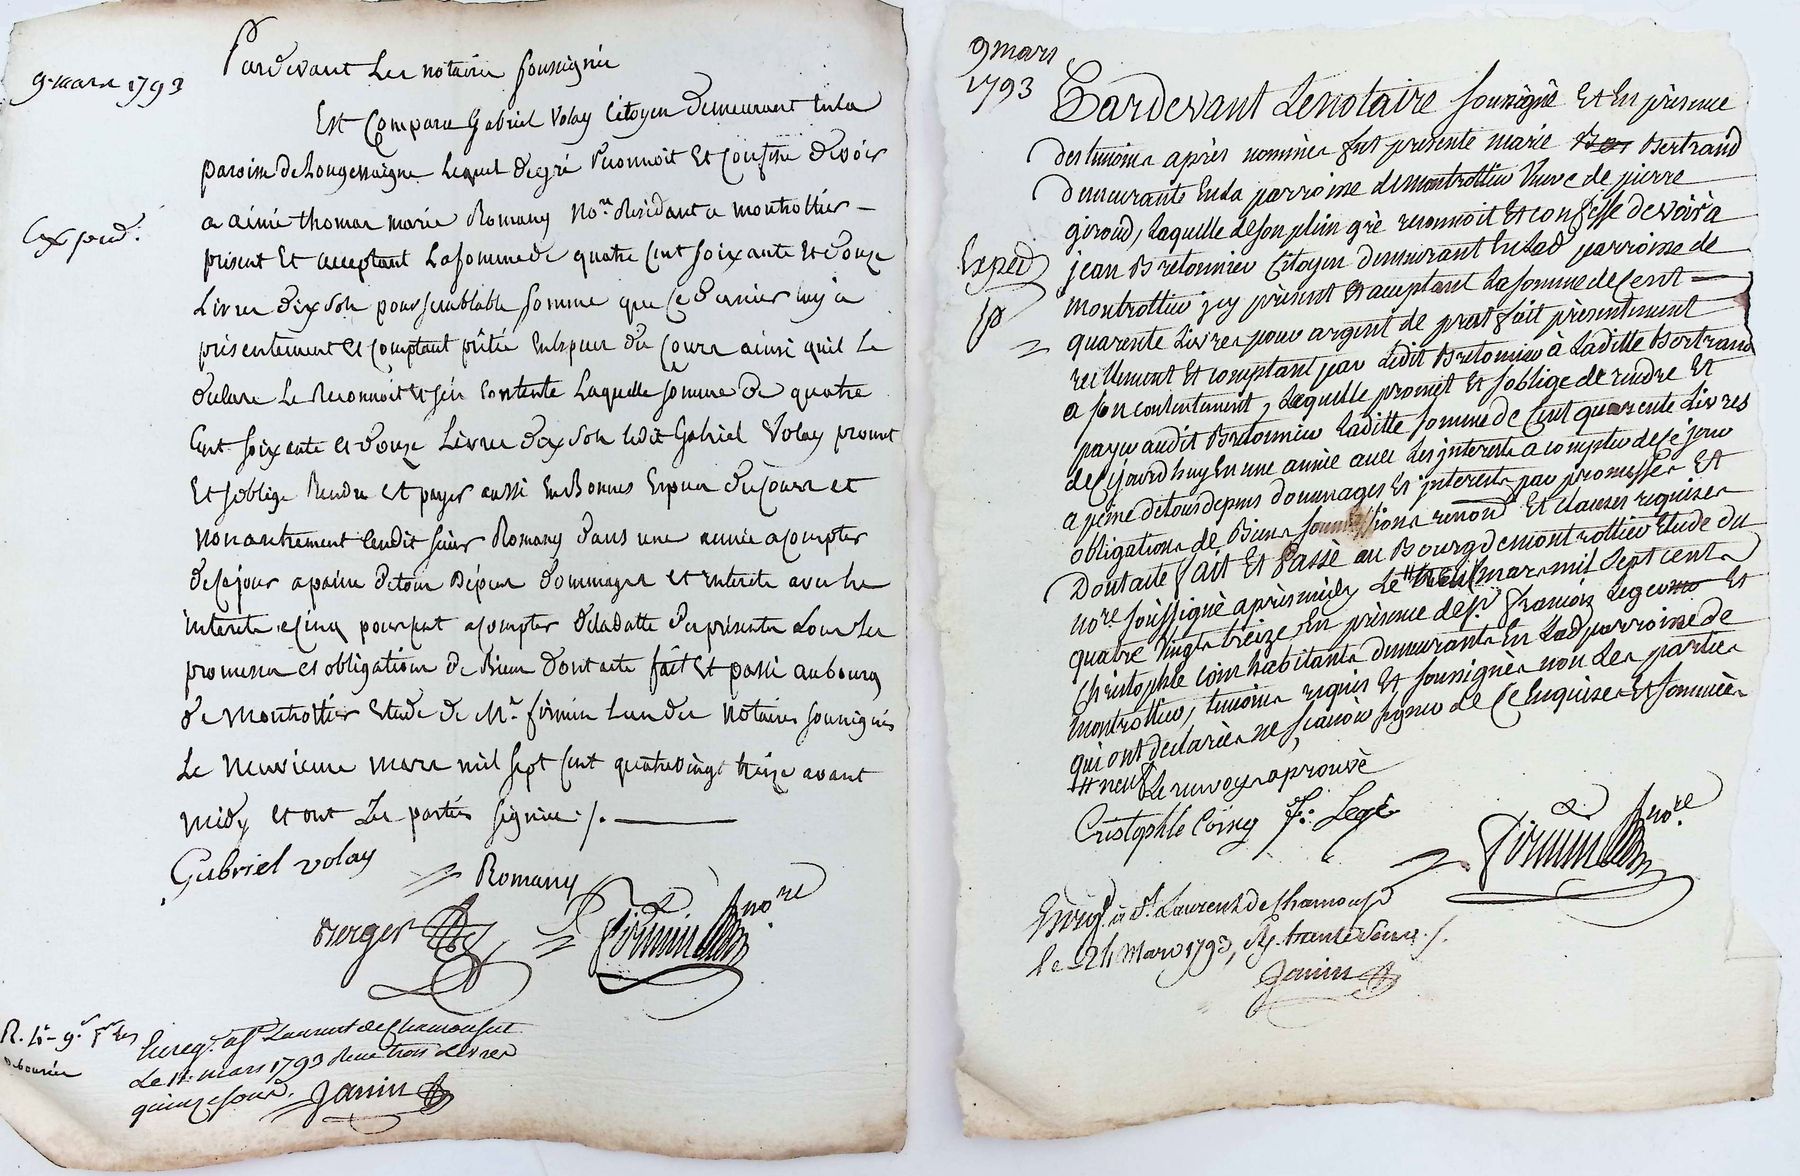 9 mars 1793
Pardevant Les notaires soussignés
Est Comparu Gabriel Volay Citoyen demeurant en la
paroisse de Longessaigne Lequel de gré reconnoit Et Confesse devoir
Exped.
a aimé thomas marie Romany No.re Résidant a montrottier —
présent Et acceptant La somme de quatre Cent soixante Et douze
Livres dix sols pour semblable somme que Ce dernier luy a
présentement Et Comptant prêtée En Espèces du Cours ainsi quil Le
déclare Le Reconnoit et sen Contente Laquelle somme de quatre
Cent soixante et douze Livres dix sols ledit Gabriel Volay promet
Et soblige Rendre et payer aussi En Bonnes Espèces du Cours et
non autrement audit sieur Romany dans une année a compter
de ce jour a peine de tous Dépens dommages et interets avec les
interets a Cinq pour Cent a compter de la datte des présentes sous les
promesses et obligations de Biens dont acte fait Et passé au bourg
de Montrottier Etude de M.e firmin L'un des Notaires soussignés
Le Neuvieme mars mil sept Cent quatre vingt treize avant
midy et ont Les parties signées ./.
Gabriel volay
Romany
Berger
Firmin no.re
Enreg. a St Laurent de Chamousset
Le 11 mars 1793 Reçu trois livres
quinze sous.
Janin
9 mars
1793
Pardevant Le notaire soussigné Et En présence
des temoins après nommés fut présente marie Bertrand
demeurante En La parroisse de montrottier Veuve de pierre
giroud, Laquelle de son plein gré reconnoit Et confesse devoir a
Exped
jean Bretonnier Citoyen demeurant En Lad parroisse de
montrottier icy présent Et acceptant La somme de Cent —
quarente Livres pour argent de prest fait présentement
reellement Et comptant par Ledit Bretonnier à Laditte Bertrand
a son contentement, Laquelle promet Et soblige de rendre Et
payer audit Bretonnier Laditte somme de Cent quarente Livres
de Cejourdhuy En une année avec Les interets a compter de Ce jour
a peine de tous depens dommages Et interets par promesses Et
obligations de Biens soumissions renond Et clauses requises
Dont acte fait Et Passé au Bourg de montrottier Etude du
no.re soussigné après midy Le # mars mil sept cents
quatre Vingts treize En présence de sr françois Legé Et
Christophle Coin habitants demeurants En Lad parroisse de
montrottier, temoins requis Et soussignés non Les parties
qui ont declarées ne scavoir signer de Ce Enquises Et sommées
# neuf Le renvoy aprouvé
Cristophle Coing f: Legé
Firmin no.re
Enreg. à St. Laurent de Chamousset
le 24 Mars 1793, R. trente sous ./.
Janin